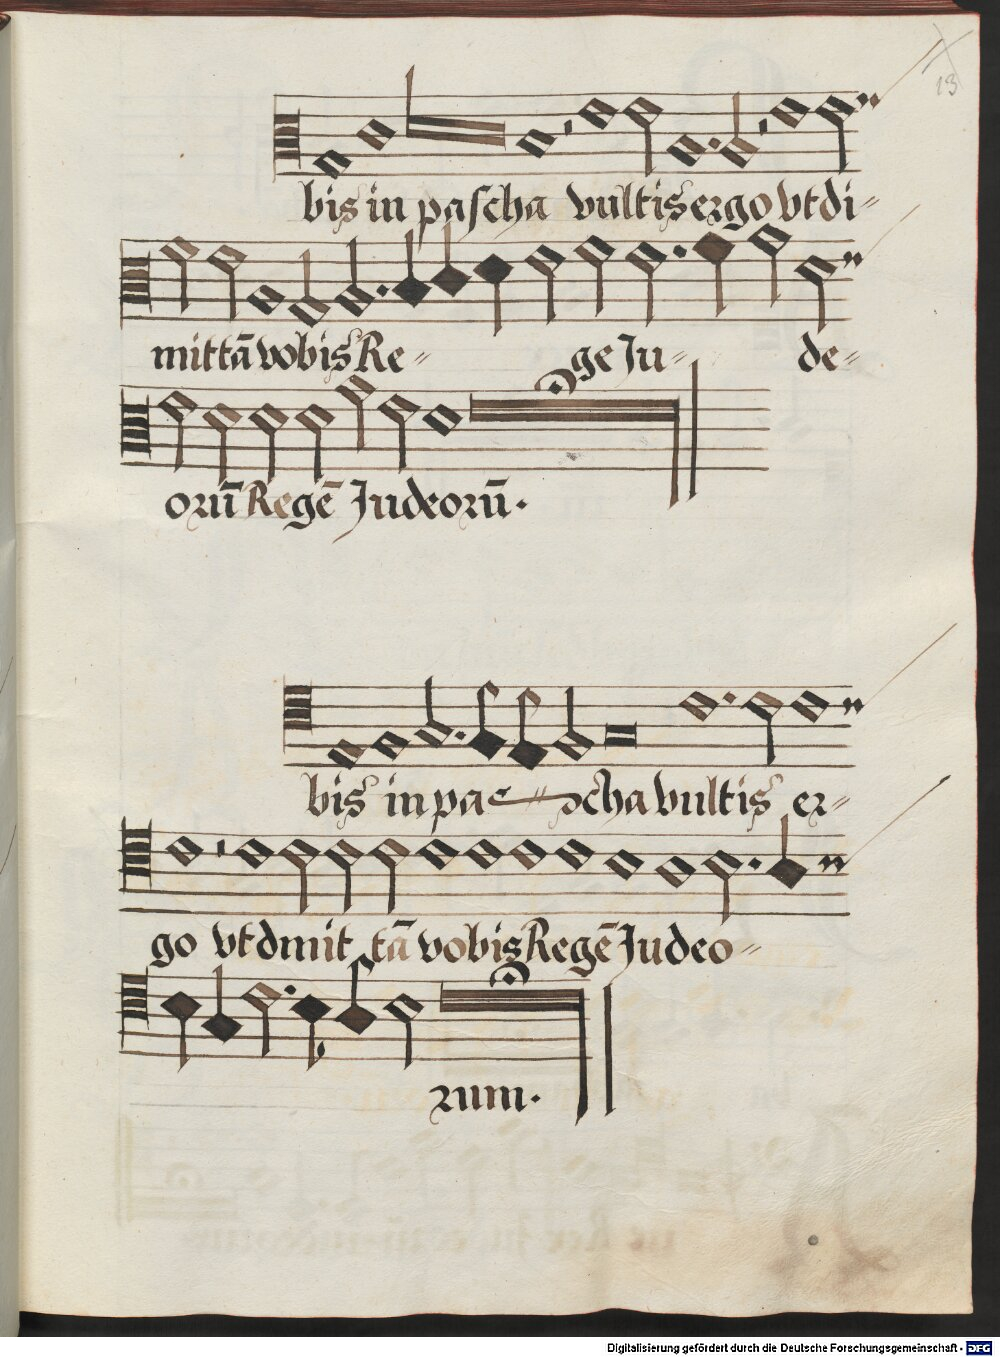 13
bis in pascha vultis ergo vt di=
mittā vobis Re= ge Ju= de=
orū Regē Judeorū.
bis in pa= scha vultis er=
go vt dmit tā vobis Regē Judeo=
rum.
Digitalisierung gefördert durch die Deutsche Forschungsgemeinschaft - DFG